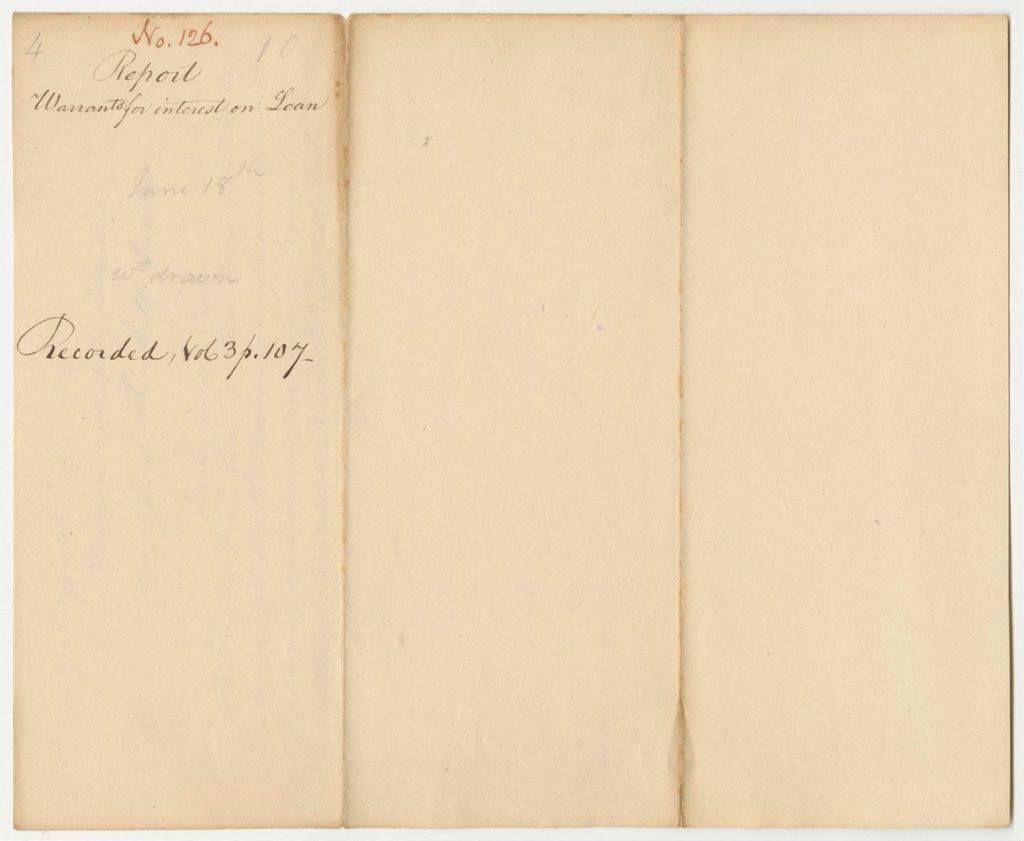 4 No. 126. 10
Report
Warrants for interest on Loan
June 18th
wt drawn
Recorded, Vol 3 p. 107-